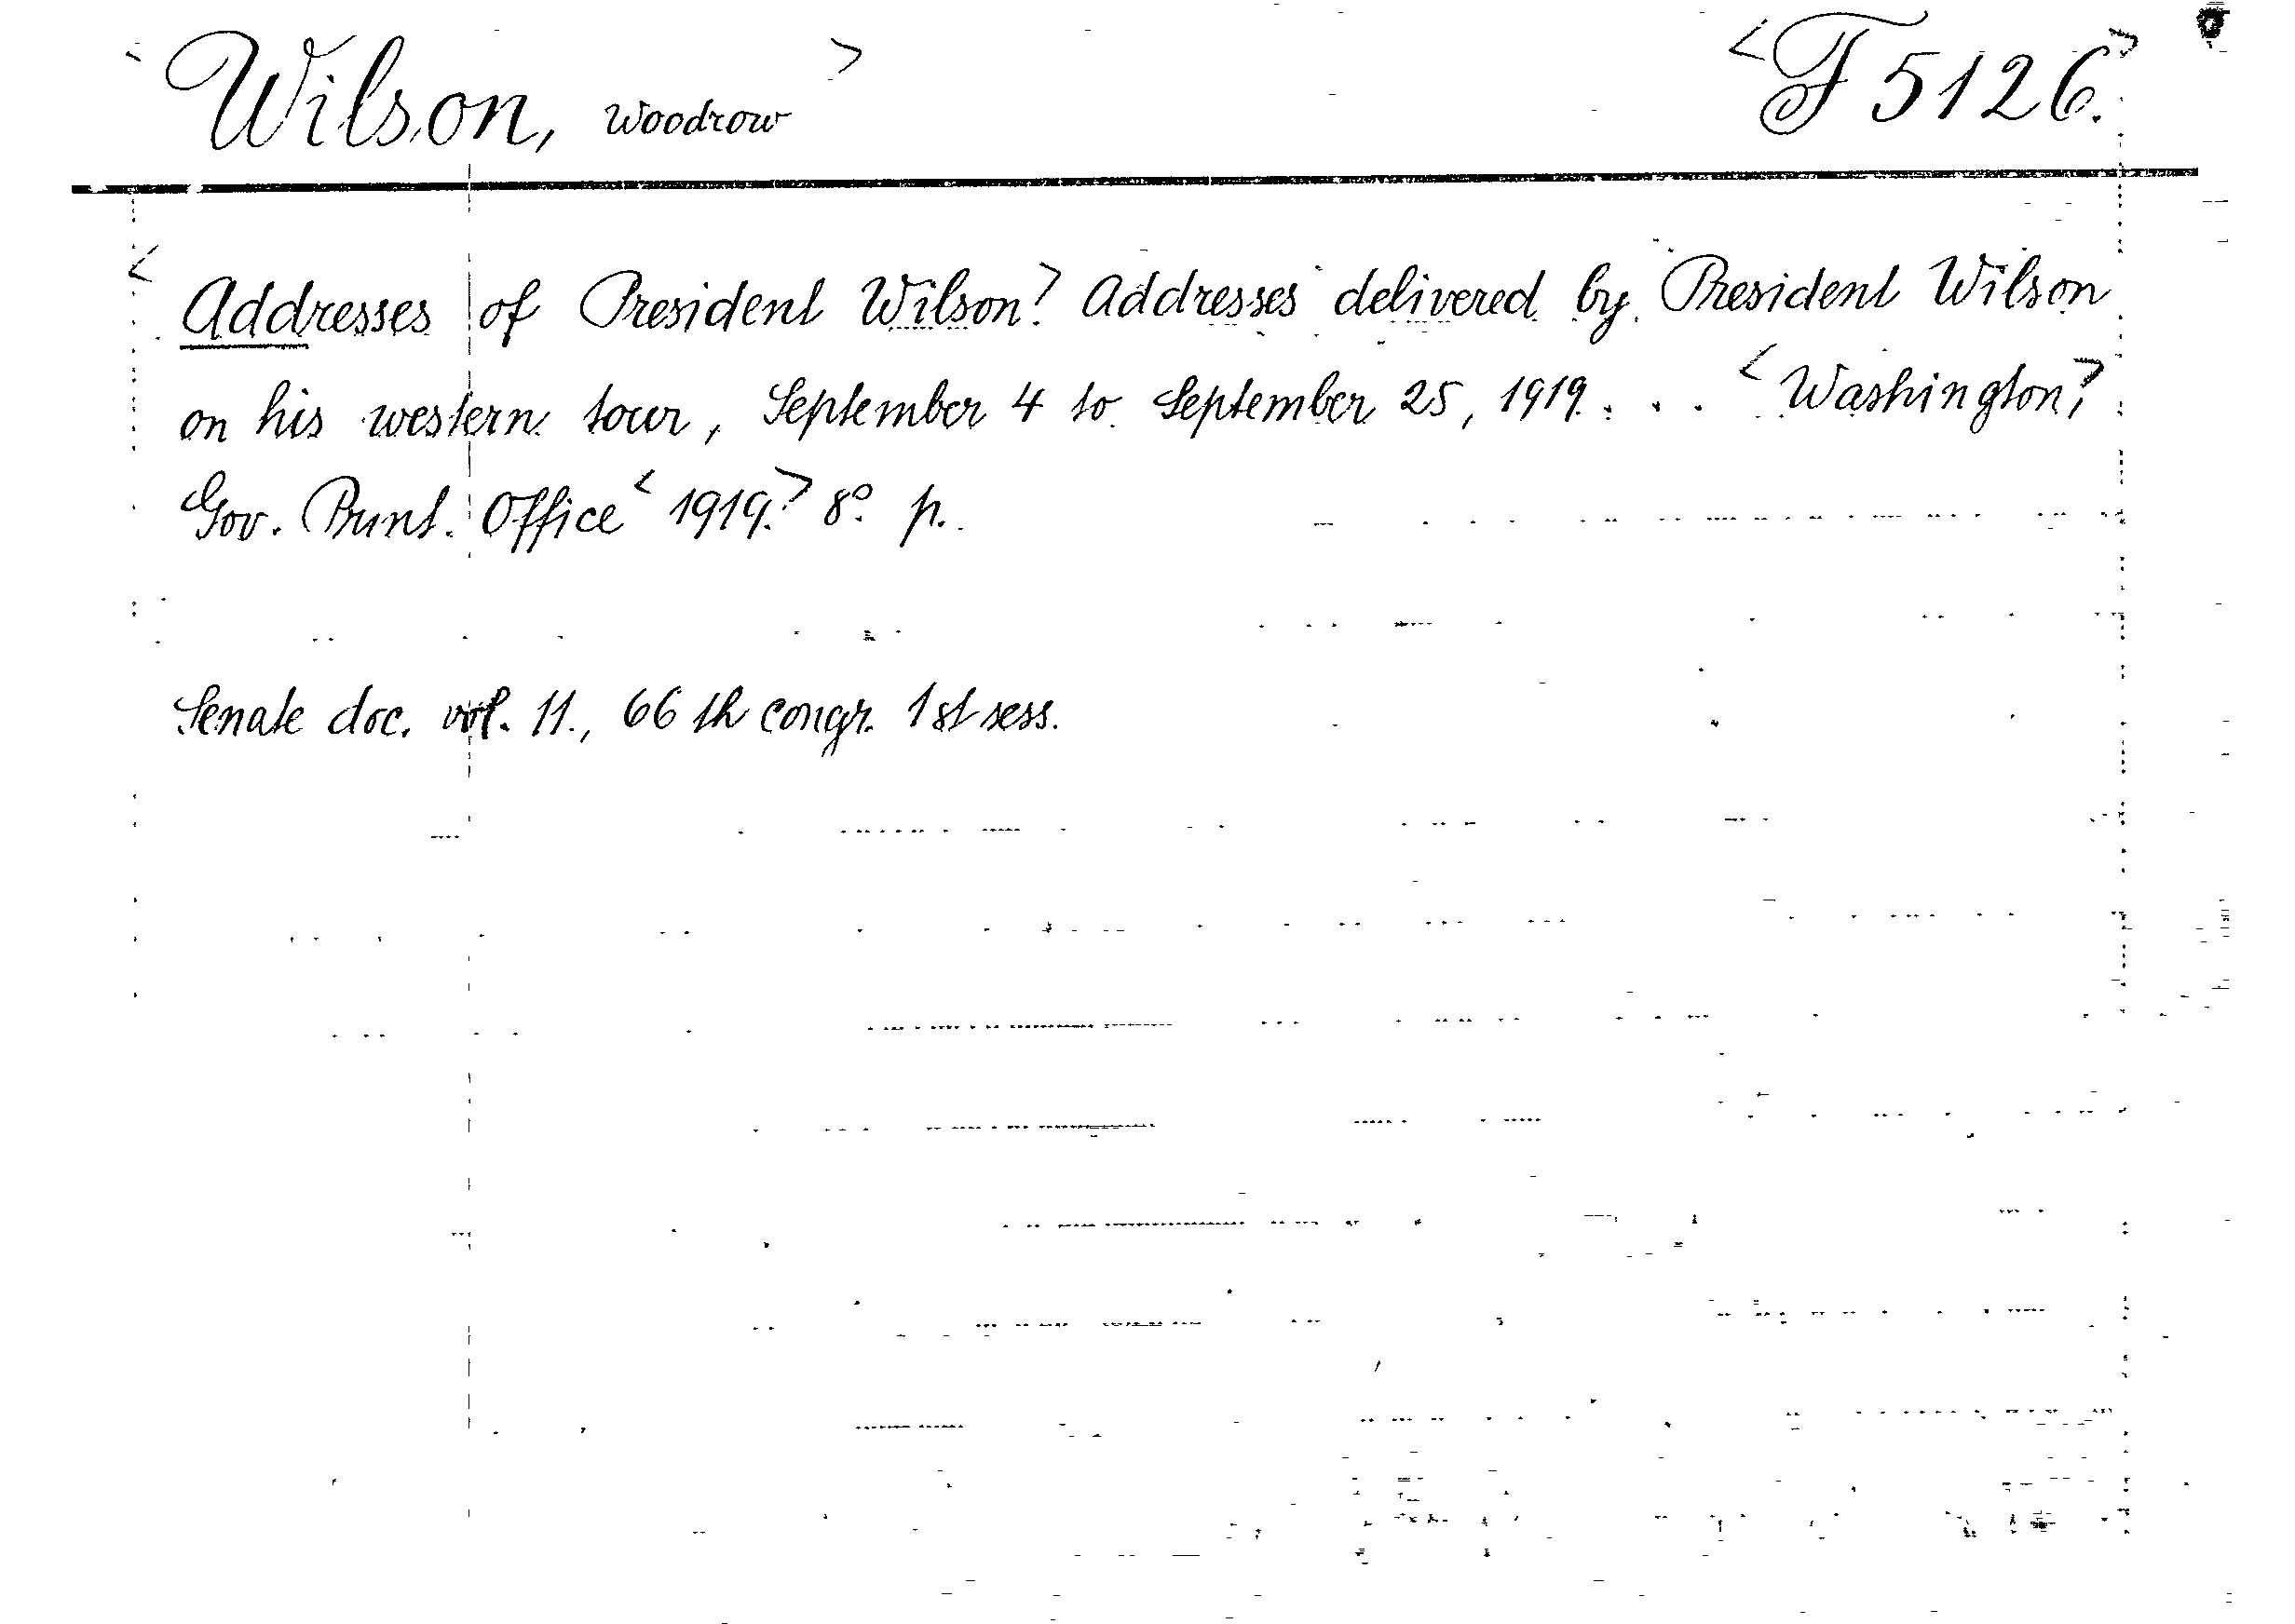 <Wilson, Woodrow> <F 5126.>
<Addresses of President Wilson.> Addresses delivered by President Wilson
on his western tour, September 4 to September 25, 1919. . . <Washington,>
Gov. Print. Office <1919.> 8° p.
Senate doc. vol. 11., 66 th congr. 1 st sess.